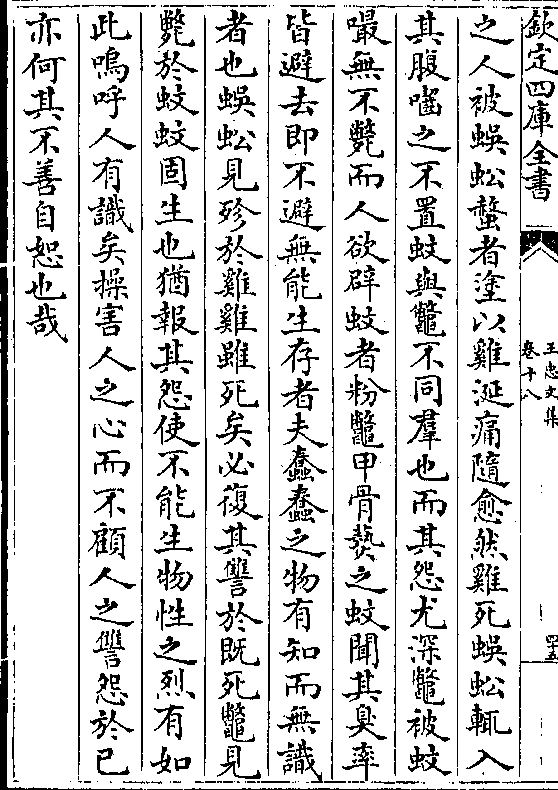 欽定四庫全書
王忠文集
卷十八
四十五
之人被蜈蚣螫者塗以雞涎痛隨愈然雞死蜈蚣輒入
其腹嚙之不置蚊與鼈不同羣也而其怨尤深鼈被蚊
嘬無不斃而人欲辟蚊者粉鼈甲骨爇之蚊聞其臭率
皆避去即不避無能生存者夫蠢蠢之物有知而無識
者也蜈蚣見殄於雞雞雖死矣必復其讐於既死鼈見
斃於蚊蚊固生也猶報其怨使不能生物性之烈有如
此嗚呼人有識矣操害人之心而不顧人之讐怨於已
亦何其不善自恕也哉